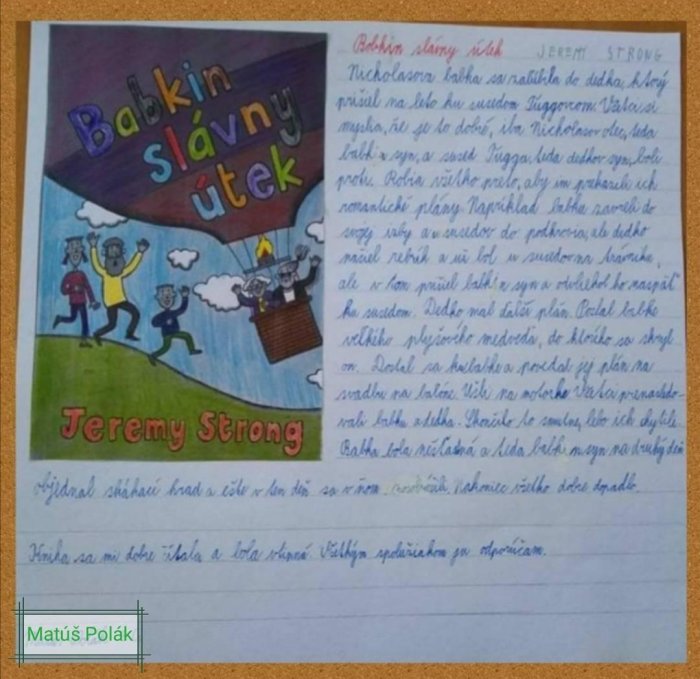 Babkin
slávny
útek
Jeremy Strong
Babkin slávny útek JEREMY STRONG
Nicholasova babka sa zaľúbila do dedka, ktorý
prišiel na leto ku susedom Túggovcom. Všetci si
myslia, že je to dobré, iba Nicholasov otec, teda
babkin syn, a sused Túgga, teda dedkov syn, boli
proti. Robia všetko preto, aby im prekazili ich
romantické plány. Napríklad babka zavreli do
svojej izby a u susedov do podkrovia, ale dedko
našiel rebrík a už bol u susedov na trávniku,
ale v tom prišiel babkin syn a odviehol ho naspäť
ku susedom. Dedko mal ďalší plán. Poslal babke
veľkého plyšového medveďa, do ktorého sa skryl
on. Dostal sa ku babke a povedal jej plán na
svadbu na balóne. Ušli na motorke. Všetci prenasledo-
vali babku a dedka. Skončilo to smutne, lebo ich chytili.
Babka bola nešťastná a teda babkin syn na druhý deň
objednal skákací hrad a ešte v ten deň sa v ňom Nakoniec všetko dobre dopadlo.
Kniha sa mi dobre čítala a bola vtipná. Všetkým spolužiakom ju odporúčam.
Matúš Polák